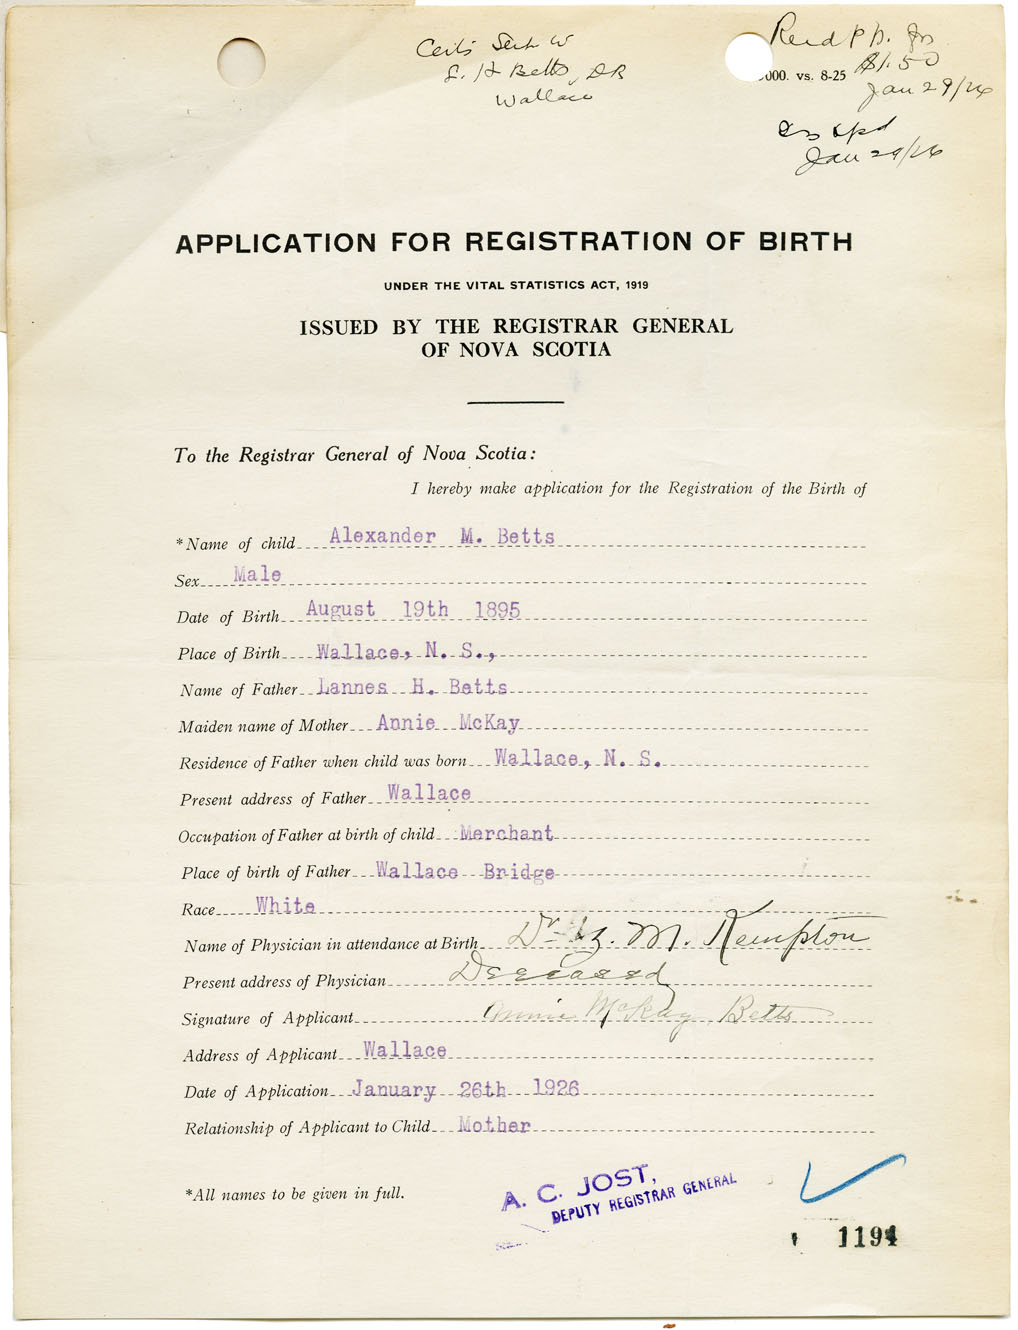 Certf Sent to
L. H Betts, DR
Wallace
Recd P.N. for
$1.50
000. vs. 8-25
Jan 29/26
Jan 29/26
APPLICATION FOR REGISTRATION OF BIRTH
UNDER THE VITAL STATISTICS ACT, 1919
ISSUED BY THE REGISTRAR GENERAL
OF NOVA SCOTIA
To the Registrar General of Nova Scotia:
I hereby make application for the Registration of the Birth of
*Name of child Alexander M. Betts
Sex Male
Date of Birth August 19th 1895
Place of Birth Wallace, N. S.,
Name of Father Lannes H. Betts
Maiden name of Mother Annie McKay
Residence of Father when child was born Wallace, N. S.
Present address of Father Wallace
Occupation of Father at birth of child Merchant
Place of birth of Father Wallace Bridge
Race White
Name of Physician in attendance at Birth Dr M. Kempton
Present address of Physician Deceased
Signature of Applicant Annie McKay Betts
Address of Applicant Wallace
Date of Application January 26th 1926
Relationship of Applicant to Child Mother
*All names to be given in full.
A. C. JOST,
DEPUTY REGISTRAR GENERAL
1194